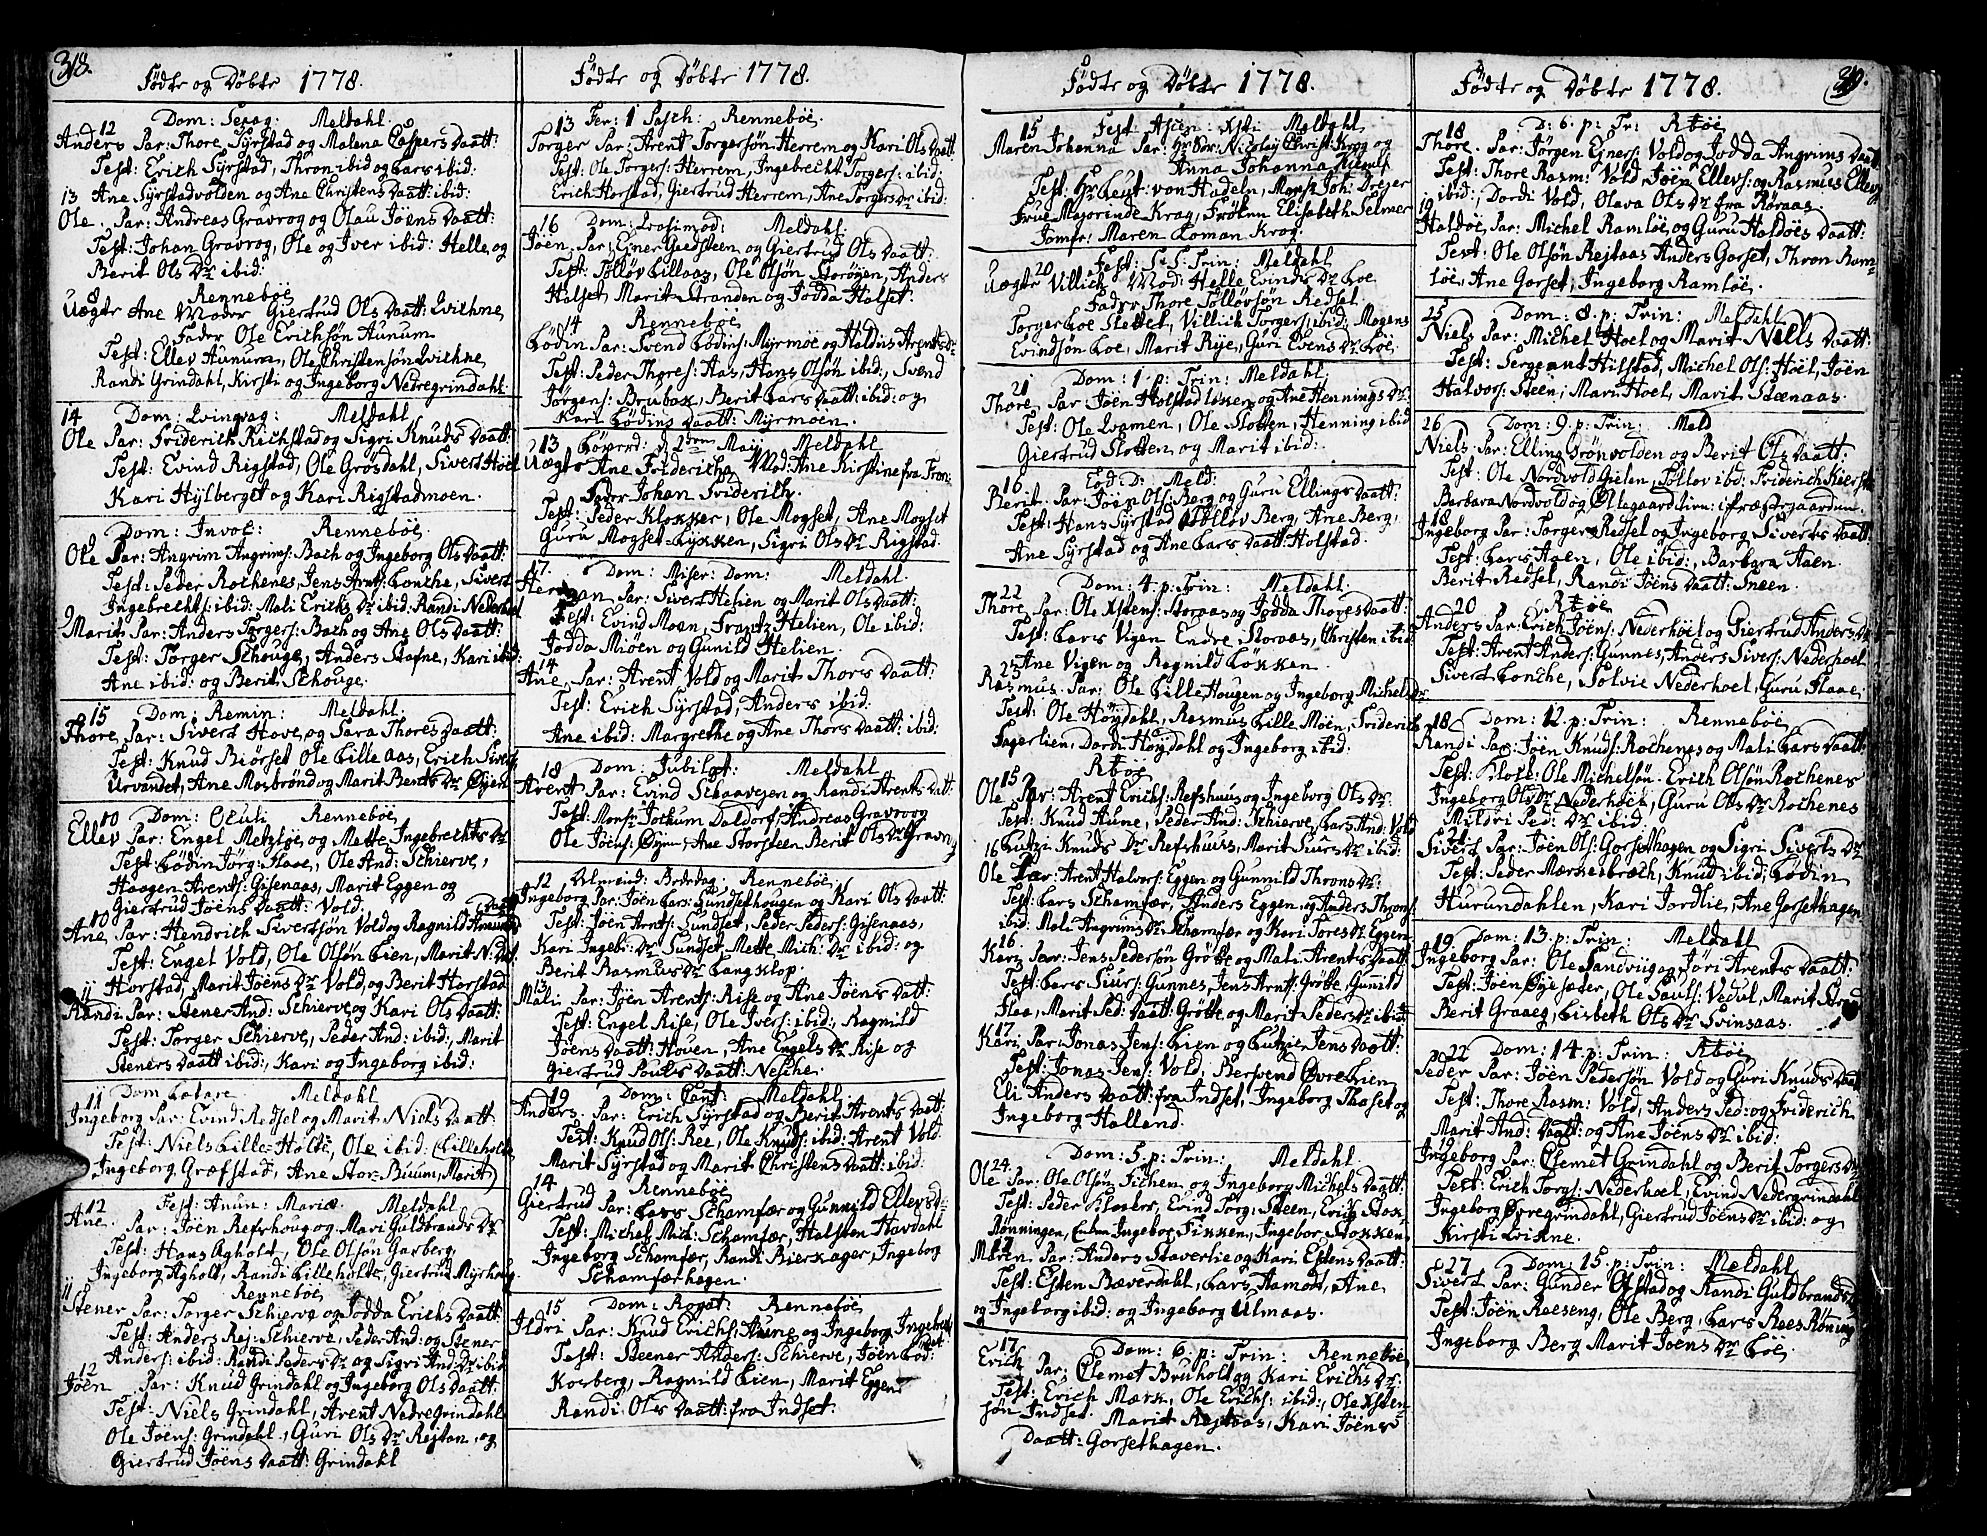 318.
Födte og Döbte 1778.
Dom: Sexag: Meldahl.
12
Anders Par: Thore Syrstad og Malena Caspers Daatt:
Test: Erich Syrstad, Thron ibid og Lars ibid:
13 Ane Syrstadvolden og Ane Christens Daatt: ibid:
Ole. Par: Andreas Gravrog og Olau Joens Daatt:
Test: Johan Gravrog, Ole og Iver ibid: Helle og
Berit Ols Dr ibid:
8 Renneboe
Uægte Ane Moder Giertrud Ols Daatt: Evichne,
Fader Ole Erichsön Aunum
Test: Ellev Aunum, Ole Christensön Evichne,
Randi Grindahl, Kirsti og Ingeborg Nedregrindahl.
14 Dom: Qvinqvag: Meldahl
Ole Par: Friderich Richstad og Sigri Knuds Daatt:
Test: Evind Rigstad, Ole Grösdahl, Sivert Höel
Kari Hylberget og Kari Rigstadmoen.
Dom: Invoc: Renneboe
9
Ole Par: Angrim Angrims: Bach og Ingeborg Ols Daatt:
Test: Peder Rochenes, Jens Arnts: Lonche, Sivert
Ingebrechts: ibid: Mali Erichs Dr ibid: Randi Nederhoel
9
Marit Par: Anders Torgers: Bach og Ane Ols Daatt:
Test: Torger Schouge, Anders Stafne, Kari ibid:
Ane ibid: og Berit Schouge.
15 Dom: Remin: Meldahl:
Thore Par: Sivert Hove, og Sara Thores Daatt:
Test: Knud Biörset Ole Lille aas, Erich Sivers
Urvandet, Ane Mosbrönd og Marit Bents Dr Öyen
10 Dom: Oculi Renneboe
Ellev Par: Engel Metzloe og Mette Ingebrechts Dr
Test: Lödin Jörg: Flaae, Ole And: Schierve,
Haagen Arents: Gisenaas, Marit Eggen og
Giertrud Joens Daatt: Vold.
10
Ane, Par: Hendrich Sivertsön Vold og Ragnild Amunds Daatt
Test: Engel Vold, Ole Olsön Lien, Marit N: Datt
Horstad, Marit Joens Dr Vold, og Berit Horstad
11
Randi Par: Stener And: Schierve og Kari Ols Daatt:
Test: Torger Schierve, Peder And: ibid:, Marit
Steners Daatt ibid:, Kari og Ingeborg ibid:
11 Dom Lætare Meldahl
Ingeborg Par: Evind Redsel og Marit Niels Daatt:
Test: Niels Lille-Holte, Ole ibid: (Lilleholte
Ingeborg Græfstad, Ane Stor-Buum, Marit)
12 Fest: Anun: Mariæ Meldahl
Ane. Par: Joen Refshoug og Mari Guldbrands Dr
Test: Hans Agholt, Ole Olsön Garberg
Ingeborg Agholt, Randi Lilleholte, Giertrud Myrhoug
11 Renneboe
Stener Par: Torger Schierve og Jodda Erichs Daatt:
Test: Anders Rej: Schierve, Peder And: og Stener
Anders: ibid: Randi Peders Dr og Sigri And: Dr ibid
12
Joen Par: Knud Grindahl og Ingeborg Ols Daatt:
Test: Niels Grindahl, Arent NedreGrindahl
Ole Joens: Grindahl, Guri Ols Dr Rejtan, og
Giertrud Joens Daatt: Grindahl
Födte og Döbte 1778.
13 Fer: 1 Pasch: Renneboe.
Torger Par: Arent Torgersön Herrem og Kari Ols Daatt
Test: Ole Torgers: Herrem, Ingebrecht Torgers: ibid:
Erich Horstad, Giertrud Herrem, Ane Torgers Dr ibid:
16 Dom: Qvasimod: Meldahl:
Joen, Par: Einer Goedsteen og Giertrud Ols Daatt:
Test: Tölløv Lillaas, Ole Olsön Storöyen, Anders
Halset Marit Stranden og Jodda Halset.
14 Renneboe
Lödin Par: Svend Lödins: Myrmöe og Haldis Arents Dr
Test: Peder Thores: Aas, Hans Olsön ibid:, Svend
Jörgens: Brubak, Berit Lars Daatt: ibid: og
Kari Lödins Daatt: Myrmöen.
13 Löverd: d 2den Maij Meldahl
Uægte Ane Friderich, Mod: Ane Kirstine fra Tron:
Fader Johan Friderich.
Test: Peder Klokker, Ole Mogset, Ane Mogset
Guru Mogset-Lykken, Sigri Ols Dr Rigstad.
17. Dom: Miser: Dom: Meldahl.
Herman Par: Sivert Helien og Marit Ols Daatt:
Test: Evind Moen, Frantz Helien, Ole ibid:
Jodda Miöen og Gunild Helien.
14
Ane, Par: Arent Vold og Marit Thors Daatt:
Test: Erich Syrstad, Anders ibid:
Ane ibid: Margrethe og Ane Thors Daatt: ibid:
18 Dom: Jubilat: Meldahl
Arent Par: Evind Schaavejen og Randi Arents Datt:
Test: Monsr Jochum Daldorf, Andreas Gravrog
Ole Joens: Öyen, Ane Storsteen Berit Ols Dr Gravrog
12 Almeind: Bededag Renneboe
Ingeborg Par: Joen Lars: Sundsethougen og Kari Ols Daatt:
Test: Joen Arnts: Sundset, Peder Peders: Gisenaas,
Kari Ingeb: Dr Sundset, Mette Mich: Dr ibid: og
Berit Rasmus Dr Langklop.
13
Mali Par: Joen Arents: Rise og Ane Joens Datt:
Test: Engel Rise, Ole Ivers: ibid:, Ragnild
Joens Daatt: Hoven, Ane Engels Dr Rise og
Giertrud Pouls Daatt: Nesche.
19 Dom: Cant: Meldahl:
Anders. Par: Erich Syrstad og Berit Arents Daatt:
Test: Knud Ols: Ree, Ole Knuds: ibid: Arent Vold
Marit Syrstad og Marit Christens Daatt: ibid:
14 Renneboe
Giertrud Par: Lars Schamfær og Gunnild Ellevs Dr
Test: Michel Mich: Schamfær, Halsten Havdahl
Ingeborg Schamfær, Randi Bierkager, Ingebog
Schamfærhagen.
15 Dom: Rogat: Renneboe
Ildri Par: Knud Erichs: Aune og Ingeborg Ingebrects
Test: Steener Anders: Schierve, Joen Löd:
Kosberg, Ragnild Lien, Marit Eggen
Randi Ols Daatt: fra Indset.
Födte og Döbte 1778.
15 Fest: Ascen: Xsti Meldahl
Maren Johanna Par: Hr Obr: Nicolay Christ: Krog og
Anna Johanna
Test: Hr Leut: von Hadeln, Monsr Joh: Dreyer
Frue Majorinde Krog, Frökn Elisabeth Selmer
Jomfr: Maren Coman Krog.
20 Fest: S.S. Trin: Meldahl
Uægte Villich Mod: Helle Evinds Dr Loe
Fader Thore Tölløvsön Redsel
Torger Loe Slettet, Villich Torgers: ibid: Mogens
Evindsön Loe, Marit Rye, Guri Evens Dr Loe
21 Dom: 1. p: Trin: Meldahl
Thore Par Joen Holstad løkken og Ane Hennings Dr:
Test: Ole Qvamen, Ole Slotten, Henning ibid
Giertrud Slotten og Marit ibid:
16 Eod: D: Meld:
Berit. Par: Joen Ols: Berg og Guru Ellings Daatt:
Test: Hans Syrstad Tölløv Berg, Ane Berg,
Ane Syrstad og Ane Lars Daatt: Holstad.
22 Dom: 4. p: Trin: Meldahl:
Thore Par: Ole Xstens: Storaas og Jodda Thores Daatt:
Test: Lars Vigen Endre Storaas, Christen ibid
Ane Vigen og Ragnild Løkken.
23
Rasmus Par: Ole Lille Hougen og Ingeborg Michels Dr
Test: Ole Höydahl, Rasmus Lille Moen, Friderich
Fagerlien, Dordi Höydahl og Ingeborg ibid:
15 Rböe
Ole Par: Arent Erichs: Refshuus og Ingeborg Ols Dr:
Test: Knud Aune, Peder And: Schierve, Lars And: Vold
Lutzi Knuds Dr Refshuus, Marit Siurs Dr ibid:
16
Ole Par: Arent Halvors: Eggen og Gunnild Throns Dr:
Test: Lars Schamfær, Anders Eggen og Anders Throns:
ibid: Mali Angrims Dr Schamfær og Kari Tores Dr Eggen
16
Kari Par: Jens Pedersön Grötte og Mali Arents Daatt:
Test: Lars Siurs: Gunnes, Jens Arnts: Grötte, Gunild
Flaa, Marit Ped: Daatt: Grötte og Marit Peders Dr ibid:
17
Kari, Par: Jonas Jens: Lien og Lutzie Jens Daatt:
Test: Jonas Jens: Vold, Bersvend Övre Lien
Eli Anders Daatt: fra Indset, Ingeborg Skaset og
Ingeborg Halland.
24. Dom: 5. p: Trin: Meldahl.
Ole Par: Ole Olsön Fichen og Ingeborg Michels Daatt:
Test: Peder Evind Torg: Steen, Erich Stok,
Rönningen, Ingebor Fikken, Ingebor Stokken
Maren Par: Anders Staverlie og Kari Estens Daatt:
Test: Esten Bæverdahl, Lars Hamodt, Ane
og Ingeborg ibid: og Ingeborg Ulmaas.
17 Dom: 6. p: Trin: Renneboe
Erich Par: Clemet Bruholt og Kari Erichs Dr:
Test: Erich Mærk, Ole Erichs: ibid:, Ole Xsten-
sön Indset. Marit Rejtaas, Kari Joens
Daatt: Gorsethagen.
Födte og Döbte 1778.
319.
18 D: 6. p: Tr: Rböe
Thore. Par: Jörgen Ejners: Vold og Jodda Angrims Daatt
Test: Thore Rasm: Vold, Joen Ellevs: og Rasmus Ellevs
ibid:, Dordi Vold, Olava Ols Dr fra Röraas.
19
Haldoe, Par: Michel Ramloe, og Guru Haldoes Daatt:
Test: Ole Olsön Rejtaas Anders Gorset, Thron Ram-
loe, Ane Gorset, Ingeborg Ramloe,
25 Dom: 8. p: Trin: Meldahl
Niels Par: Michel Hoel og Marit Niells Daatt:
Test: Sergeant Hilstad, Michel Ols: Höel, Joen
Halvors: Steen, Mari Hoel, Marit Stænaas.
26 Dom: 9. p: Trin: Meld
Niels Par: Elling Grönvolden og Berit Ols Daatt:
Test: Ole Nordvold Gielen, Tölløv ibid: Friderich Kierstr
Barbara Nordvold og Ollegaard Præstegaarden.
18
Ingeborg Par: Torger Redsel og Ingeborg Siverts Daatt
Test: Lars Aaen, Ole ibid:, Barbara Aaen
Berit Redsel, Randi Joens Daatt: Sneen.
20 Rböe
Anders Par: Erich Joens: Nederhoel og Giertrud Anders Dr
Test: Arent Anders: Gunnes, Anders Sivers: Nederhoel
Sivert Lonche, Solvie Nederhoel, Guru Flaae,
18 Dom: 12. p: Trin: Renneboe
Randi Par: Joen Knuds: Rochenes og Mali Lars Daatt:
Test: Klok: Ole Michelsön. Erich Olsön Rochenes
Ingeborg Ols Dr Nederhöel, Guru Ols Dr Rochenes
Mildri Ped: Dr ibid.
21
Sivert Par: Joen Ols: Gorsethagen og Sigri Siverts Dr
Test: Peder Mærkesbræch, Knud ibid, Lödin
Hurundahlen, Kari Jordlie, Ane Gorsethagen
19. Dom: 13. p: Trin: Meldahl
Ingeborg Par: Ole Sandviig og Jöri Arents Daatt:
Test: Joen Öyesæter, Ole Pauls: Vedul, Marit
Berit Graaeg, Lisbeth Ols Dr Svinsaas.
22 Dom: 14. p: Trin: Rböe
Peder Par: Joen Pedersön Vold og Guri Knuds Daatt
Test: Thore Rasm: Vold, Anders Ped: og Friderich
Marit And: Daatt: og Ane Joens Dr ibid:
19
Ingeborg Par: Clemet Grindahl og Berit Torgers Dr
Test: Erich Torgs: Nederhoel, Evind Nedergrindahl
Ingeborg Övregrindahl, Giertrud Joens Dr ibid: og
Kirsti Evikne.
27 Dom: 15. p: Trin: Meldahl
Sivert Par: Gunder Olstad og Randi Guldbrands Dr
Test: Joen Roeseng, Ole Berg, Lars Rees Röning
Ingeborg Berg Marit Joens Dr Loe.